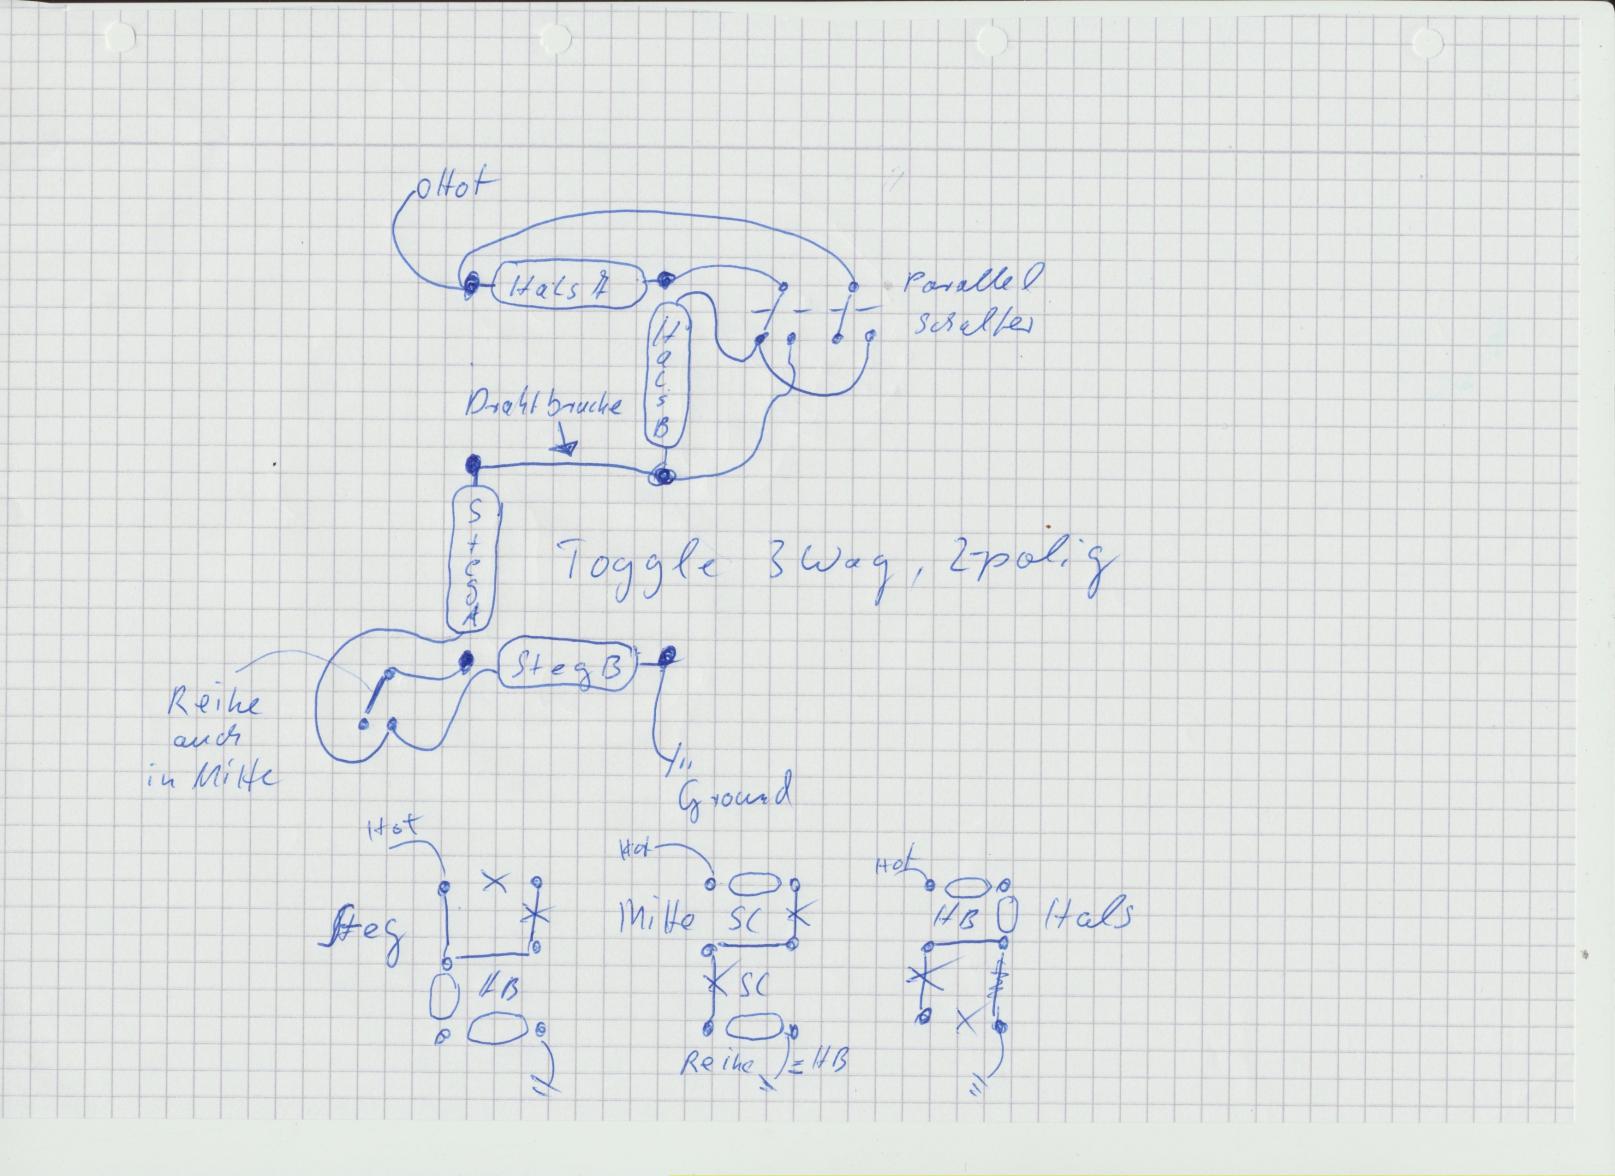 Hot
Hals A
Parallel
schalter
Hals B
Drahtbrücke
Steg A
Toggle 3 Way, 2-polig
Steg B
Reihe
auch
in Mitte
Ground
Hot
Hot
Hot
Steg
HB
Mitte
SC
SC
Reihe = HB
HB
Hals